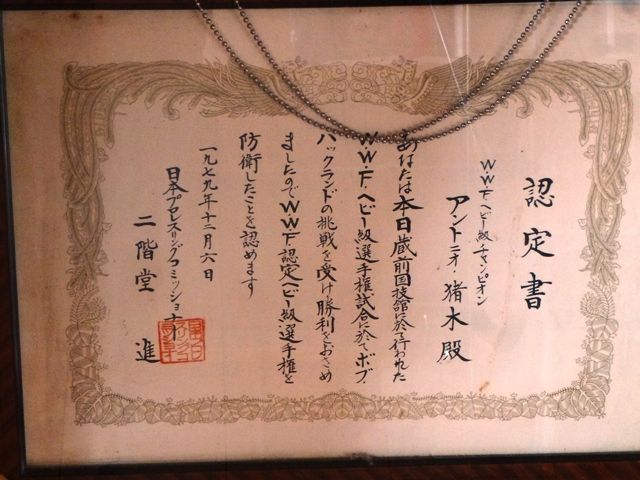 認定書
W.W.F.ヘビー級チャンピオン
アントニオ・猪木殿
あなたは本日蔵前国技館に於て行われた
W.W.F.ヘビー級選手権試合に於てボブ・
バックランドの挑戦を受け勝利をおさめ
ましたのでW.W.F.認定ヘビー級選手権を
防衛したことを認めます
一九七九年十二月六日
日本プロレスリングコミッショナー
二階堂 進